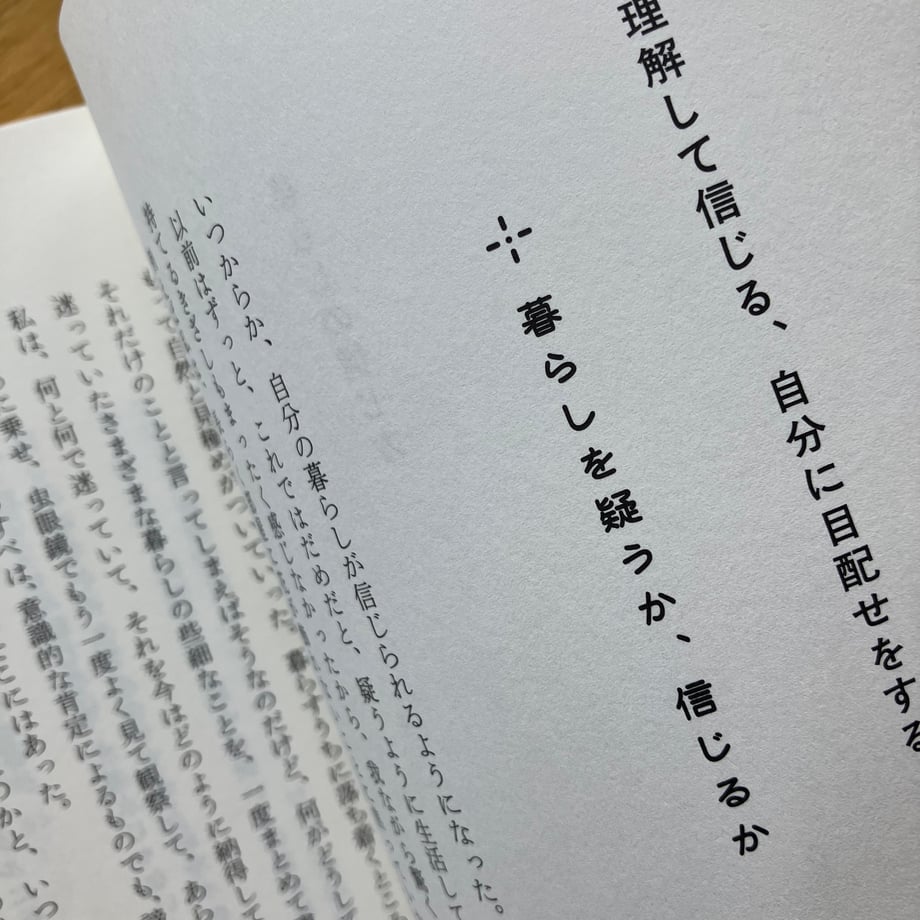 理解して信じる、自分に目配せをする
暮らしを疑うか、信じるか
いつからか、自分の暮らしが信じられるようになった。
以前はずっと、これではだめだと、疑うように生活して
持てるきざしもまったく感じなかったから、我ながら驚く
自然と見極めがついていった。暮らすうちに落ち着くところ
それだけのことと言ってしまえばそうなのだけど、何がどうして
迷っていたさまざまな暮らしの些細なことを、一度まとめて
私は、何と何で迷っていて、それを今はどのように納得して
に乗せ、虫眼鏡でもう一度よく見て観察して、あら
すべは、意識的な肯定によるものでも、
ここにはあった。
つかと、いつ